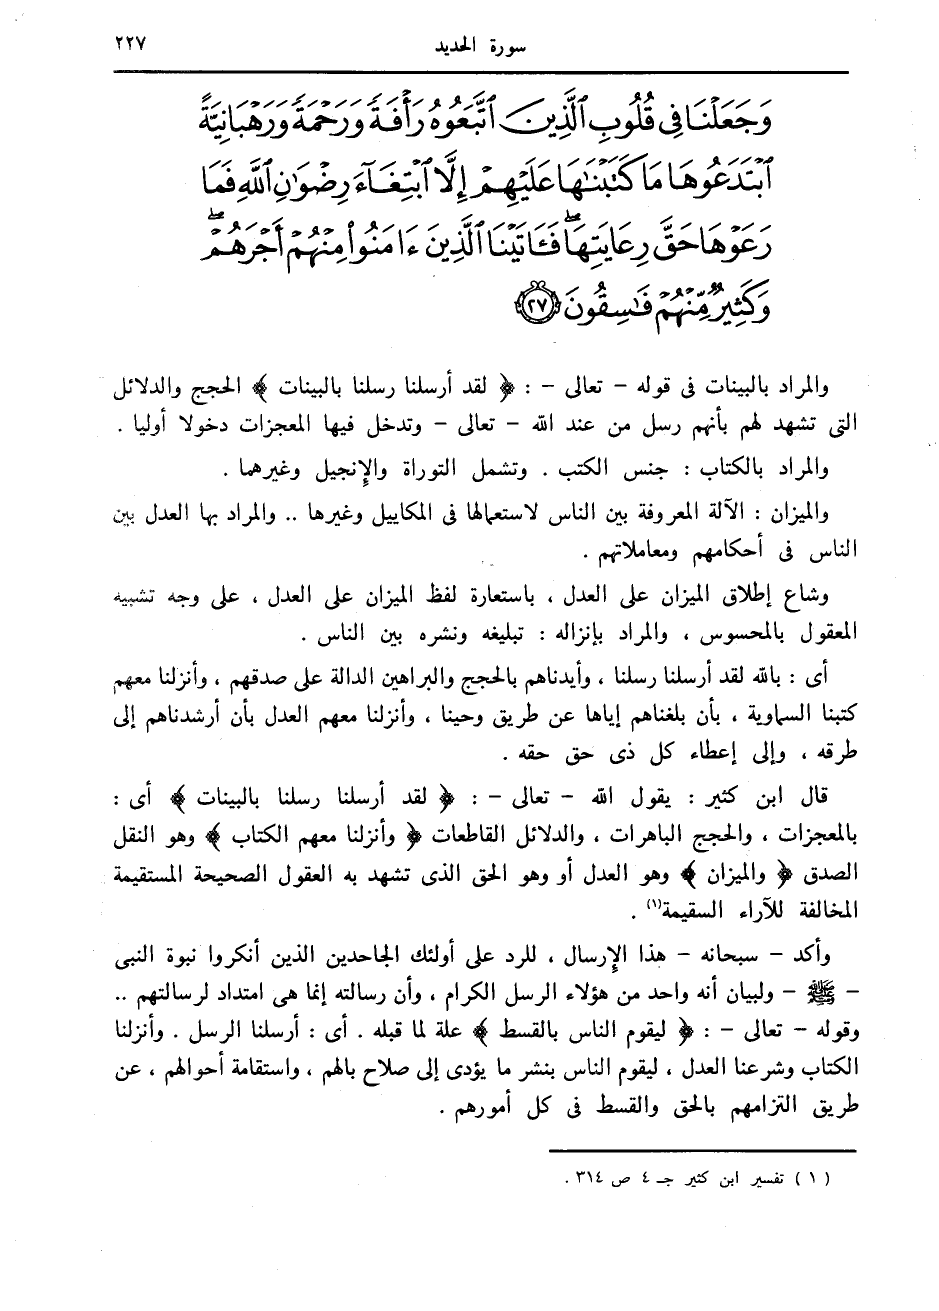 سورة الحديد ٢٢٧
وَجَعَلْنَا فِى قُلُوبِ ٱلَّذِينَ ٱتَّبَعُوهُ رَأْفَةً وَرَحْمَةً وَرَهْبَانِيَّةً
ٱبْتَدَعُوهَا مَا كَتَبْنَٰهَا عَلَيْهِمْ إِلَّا ٱبْتِغَآءَ رِضْوَٰنِ ٱللَّهِ فَمَا
رَعَوْهَا حَقَّ رِعَايَتِهَا ۖ فَـَٔاتَيْنَا ٱلَّذِينَ ءَامَنُوا۟ مِنْهُمْ أَجْرَهُمْ ۖ
وَكَثِيرٌ مِّنْهُمْ فَٰسِقُونَ ﴿٢٧﴾
والمراد بالبينات فى قوله - تعالى - : ﴿ لقد أرسلنا رسلنا بالبينات ﴾ الحجج والدلائل
التى تشهد لهم بأنهم رسل من عند الله - تعالى - وتدخل فيها المعجزات دخولا أوليا .
والمراد بالكتاب : جنس الكتب . وتشمل التوراة والإنجيل وغيرهما .
والميزان : الآلة المعروفة بين الناس لاستعمالها فى المكاييل وغيرها .. والمراد بها العدل بين
الناس فى أحكامهم ومعاملاتهم .
وشاع إطلاق الميزان على العدل ، باستعارة لفظ الميزان على العدل ، على وجه تشبيه
المعقول بالمحسوس ، والمراد بإنزاله : تبليغه ونشره بين الناس .
أى : بالله لقد أرسلنا رسلنا ، وأيدناهم بالحجج والبراهين الدالة على صدقهم ، وأنزلنا معهم
كتبنا السماوية ، بأن بلغناهم إياها عن طريق وحينا ، وأنزلنا معهم العدل بأن أرشدناهم إلى
طرقه ، وإلى إعطاء كل ذى حق حقه .
قال ابن كثير : يقول الله - تعالى - : ﴿ لقد أرسلنا رسلنا بالبينات ﴾ أى :
بالمعجزات ، والحجج الباهرات ، والدلائل القاطعات ﴿ وأنزلنا معهم الكتاب ﴾ وهو النقل
الصدق ﴿ والميزان ﴾ وهو العدل أو وهو الحق الذى تشهد به العقول الصحيحة المستقيمة
المخالفة للآراء السقيمة(١) .
وأكد - سبحانه - هذا الإرسال ، للرد على أولئك الجاحدين الذين أنكروا نبوة النبى
- ﷺ - ولبيان أنه واحد من هؤلاء الرسل الكرام ، وأن رسالته إنما هى امتداد لرسالتهم ..
وقوله - تعالى - : ﴿ ليقوم الناس بالقسط ﴾ علة لما قبله . أى : أرسلنا الرسل . وأنزلنا
الكتاب وشرعنا العدل ، ليقوم الناس بنشر ما يؤدى إلى صلاح بالهم ، واستقامة أحوالهم ، عن
طريق التزامهم بالحق والقسط فى كل أمورهم .
( ١ ) تفسير ابن كثير جـ ٤ ص ٣١٤ .